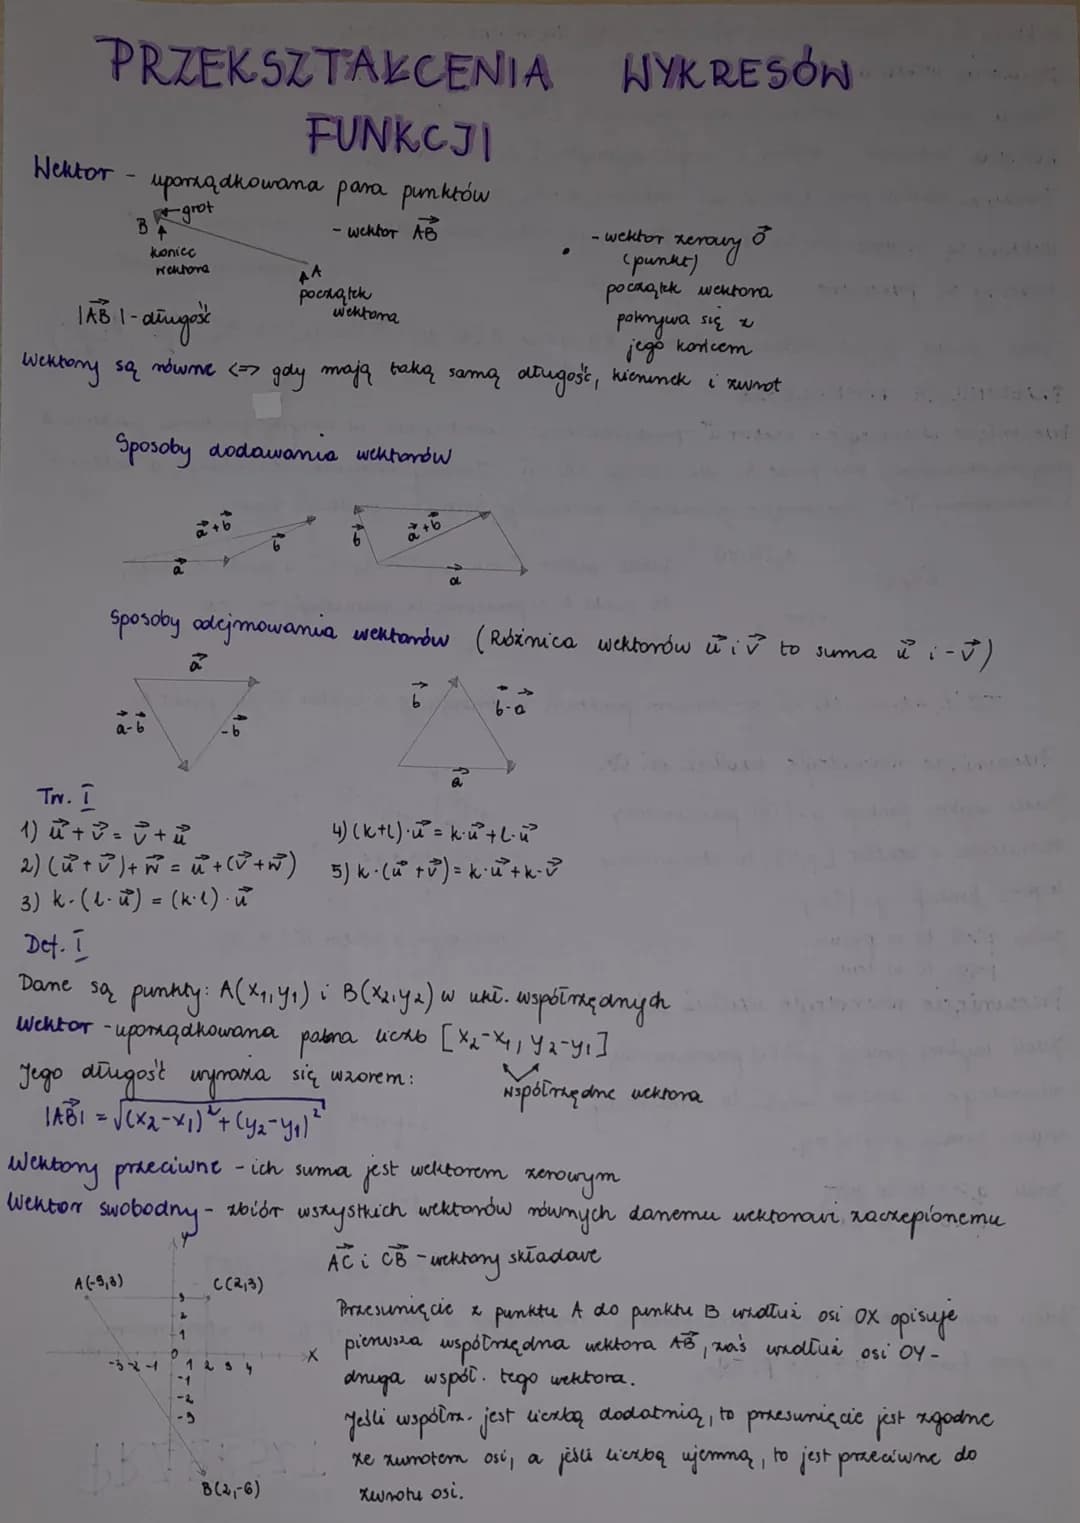 PRZEKSZTAŁCENIA WYKRESÓW
FUNKCJI
Wektor - uporządkowana para punktów
B
grot
koniec
wektora
A
początek
wektora
- wektor AB→
- wektor zerowy o→
(punkt)
początek wektora
pokrywa się z
jego końcem
|AB→| - długość
Wektory są równe <=> gdy mają taką samą długość, kierunek i zwrot
Sposoby dodawania wektorów
a→+b→
b→
a→
b→
a→+b→
a→
Sposoby odejmowania wektorów (Różnica wektorów u→ i v→ to suma u→ i -v→)
a→
a→-b→
-b→
b→
b→-a→
a→
Tw. I
1) u→+v→=v→+u→
2) (u→+v→)+w→=u→+(v→+w→)
3) k·(l·u→)=(k·l)·u→
4) (k+l)·u→=k·u→+l·u→
5) k·(u→+v→)=k·u→+k·v→
Def. I
Dane są punkty: A(x₁,y₁) i B(x₂,y₂) w ukł. współrzędnych
Wektor - uporządkowana para liczb [x₂-x₁, y₂-y₁]
współrzędne wektora
Jego długość wyraża się wzorem:
|AB→| = √(x₂-x₁)²+(y₂-y₁)²
Wektory przeciwne - ich suma jest wektorem zerowym
Wektor swobodny - zbiór wszystkich wektorów równych danemu wektorowi zaczepionemu
y
A(-3,3)
C(2,3)
3
2
1
-3 -2 -1 0 1 2 3 4 x
-1
-2
-3
B(2,-6)
AC→ i CB→ - wektory składowe
Przesunięcie z punktu A do punktu B wzdłuż osi OX opisuje
pierwsza współrzędna wektora AB→, zaś wzdłuż osi OY -
druga współ. tego wektora.
Jeśli współrz. jest liczbą dodatnią, to przesunięcie jest zgodne
ze zwrotem osi, a jeśli liczbą ujemną, to jest przeciwne do
zwrotu osi.